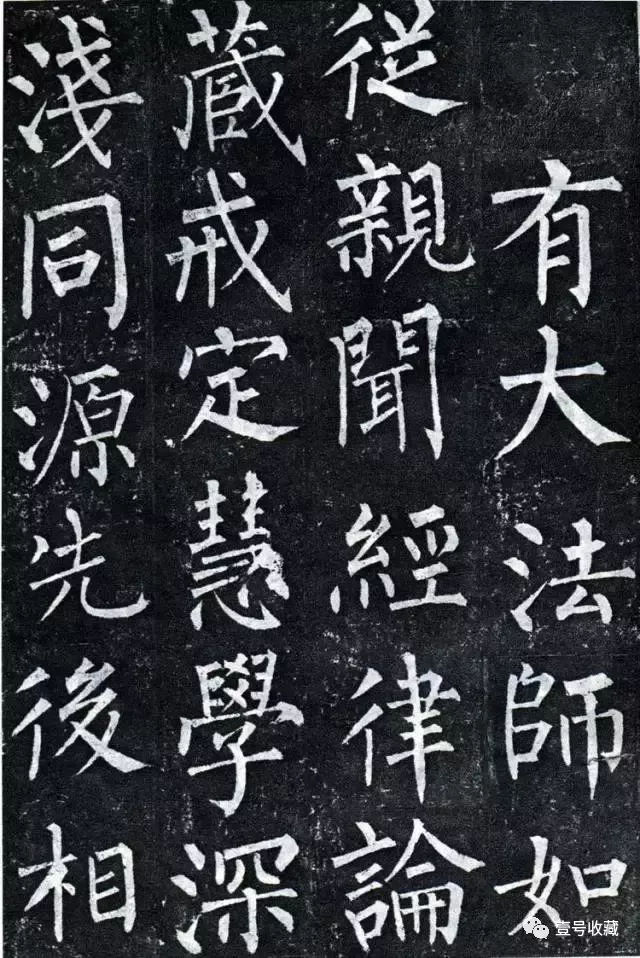 有大法師如
從親聞經律論
藏戒定慧學深
淺同源先後相
壹号收藏